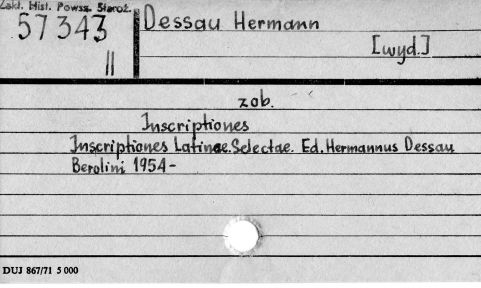 Zakł. Hist. Powsz. Staroż.
57343
II
Dessau Hermann
[wyd.]
zob.
Inscriptiones
Inscriptiones Latinae Selectae. Ed. Hermannus Dessau
Berolini 1954-
DUJ 867/71 5 000